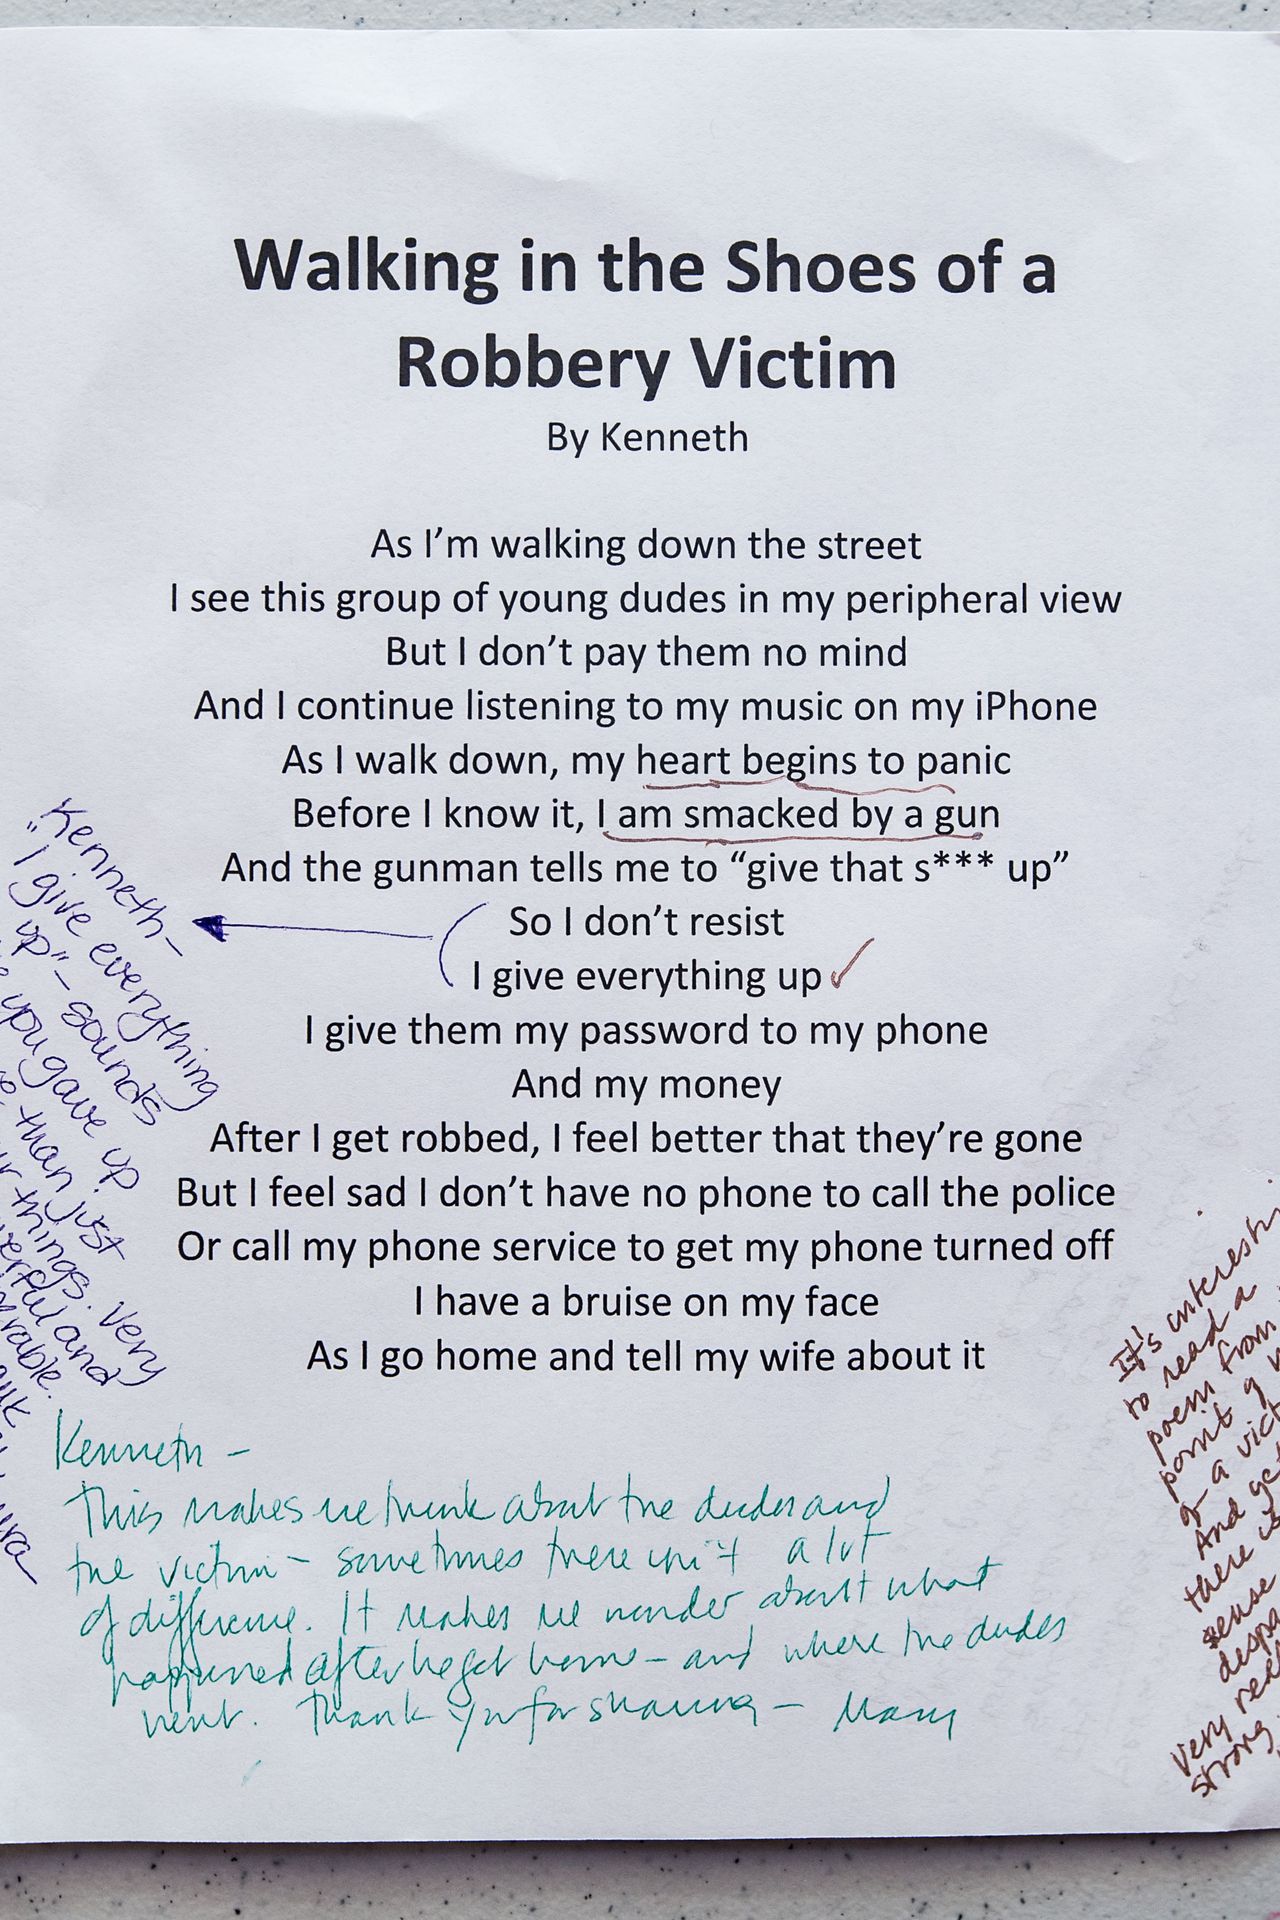 Walking in the Shoes of a
Robbery Victim
By Kenneth
As I'm walking down the street
I see this group of young dudes in my peripheral view
But I don't pay them no mind
And I continue listening to my music on my iPhone
As I walk down, my heart begins to panic
Before I know it, I am smacked by a gun
And the gunman tells me to “give that s*** up”
So I don't resist
I give everything up
I give them my password to my phone
And my money
After I get robbed, I feel better that they're gone
But I feel sad I don't have no phone to call the police
Or call my phone service to get my phone turned off
I have a bruise on my face
As I go home and tell my wife about it
Kenneth –
"I give everything
up" – sounds
you gave up
than just
things. Very
and
Kenneth –
This makes me think about the dudes and
the victim – sometimes there isn't a lot
of difference. It makes me wonder about what
happened after he got home – and where the dudes
went. Thank you for sharing – Mary
It's
to read a
poem from
point of
of a
And
there is
sense
very
strong.